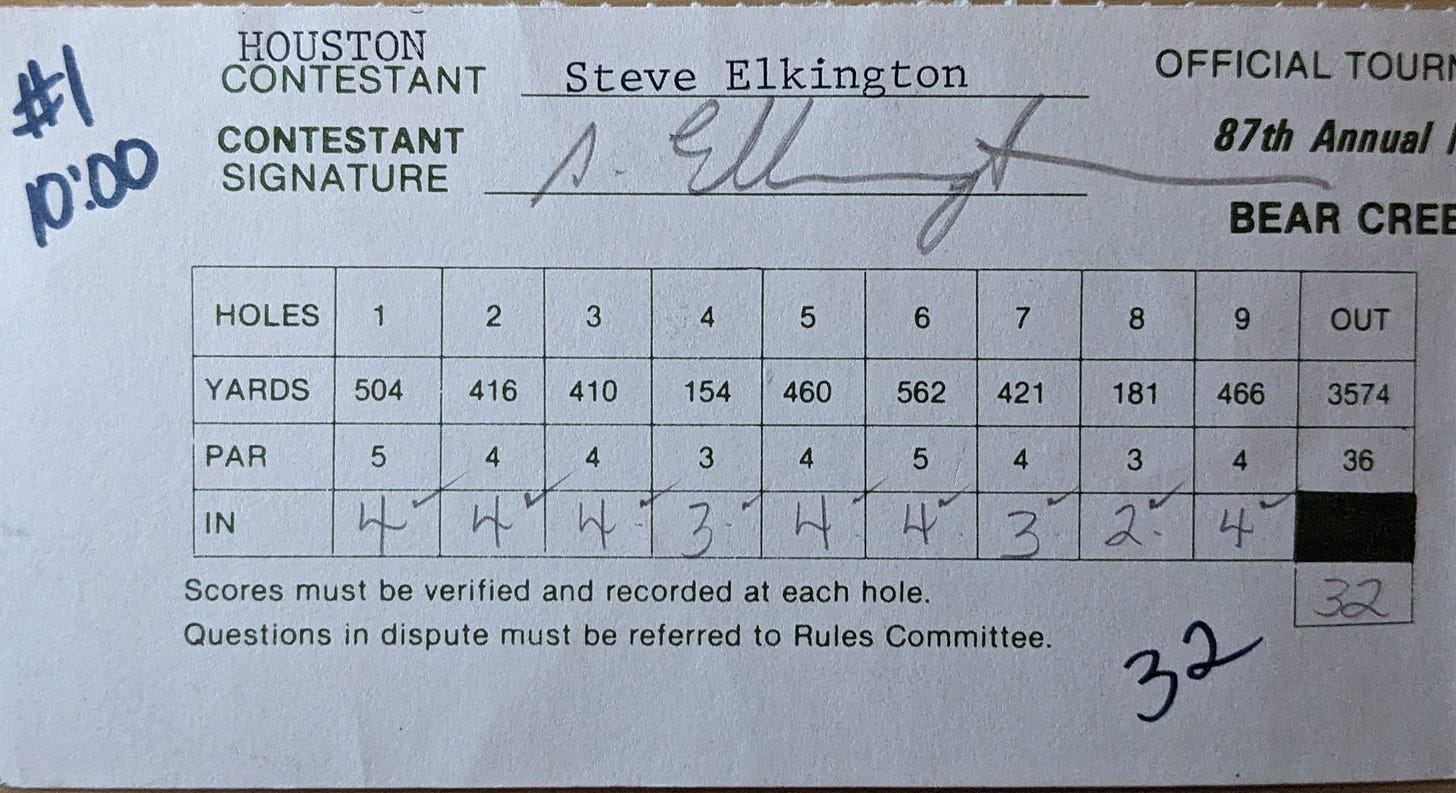 #1
10:00
HOUSTON
CONTESTANT Steve Elkington
CONTESTANT
SIGNATURE S. Elkington
OFFICIAL TOURN
87th Annual
BEAR CREE
HOLES 1 2 3 4 5 6 7 8 9 OUT
YARDS 504 416 410 154 460 562 421 181 466 3574
PAR 5 4 4 3 4 5 4 3 4 36
IN 4 4 4 3 4 4 3 2 4
32
Scores must be verified and recorded at each hole.
Questions in dispute must be referred to Rules Committee.
32